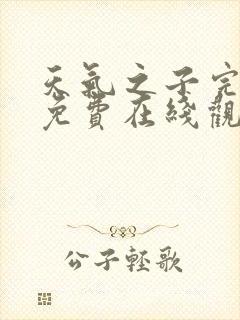 天氣之子完
免費在綫觀
公子輕歌